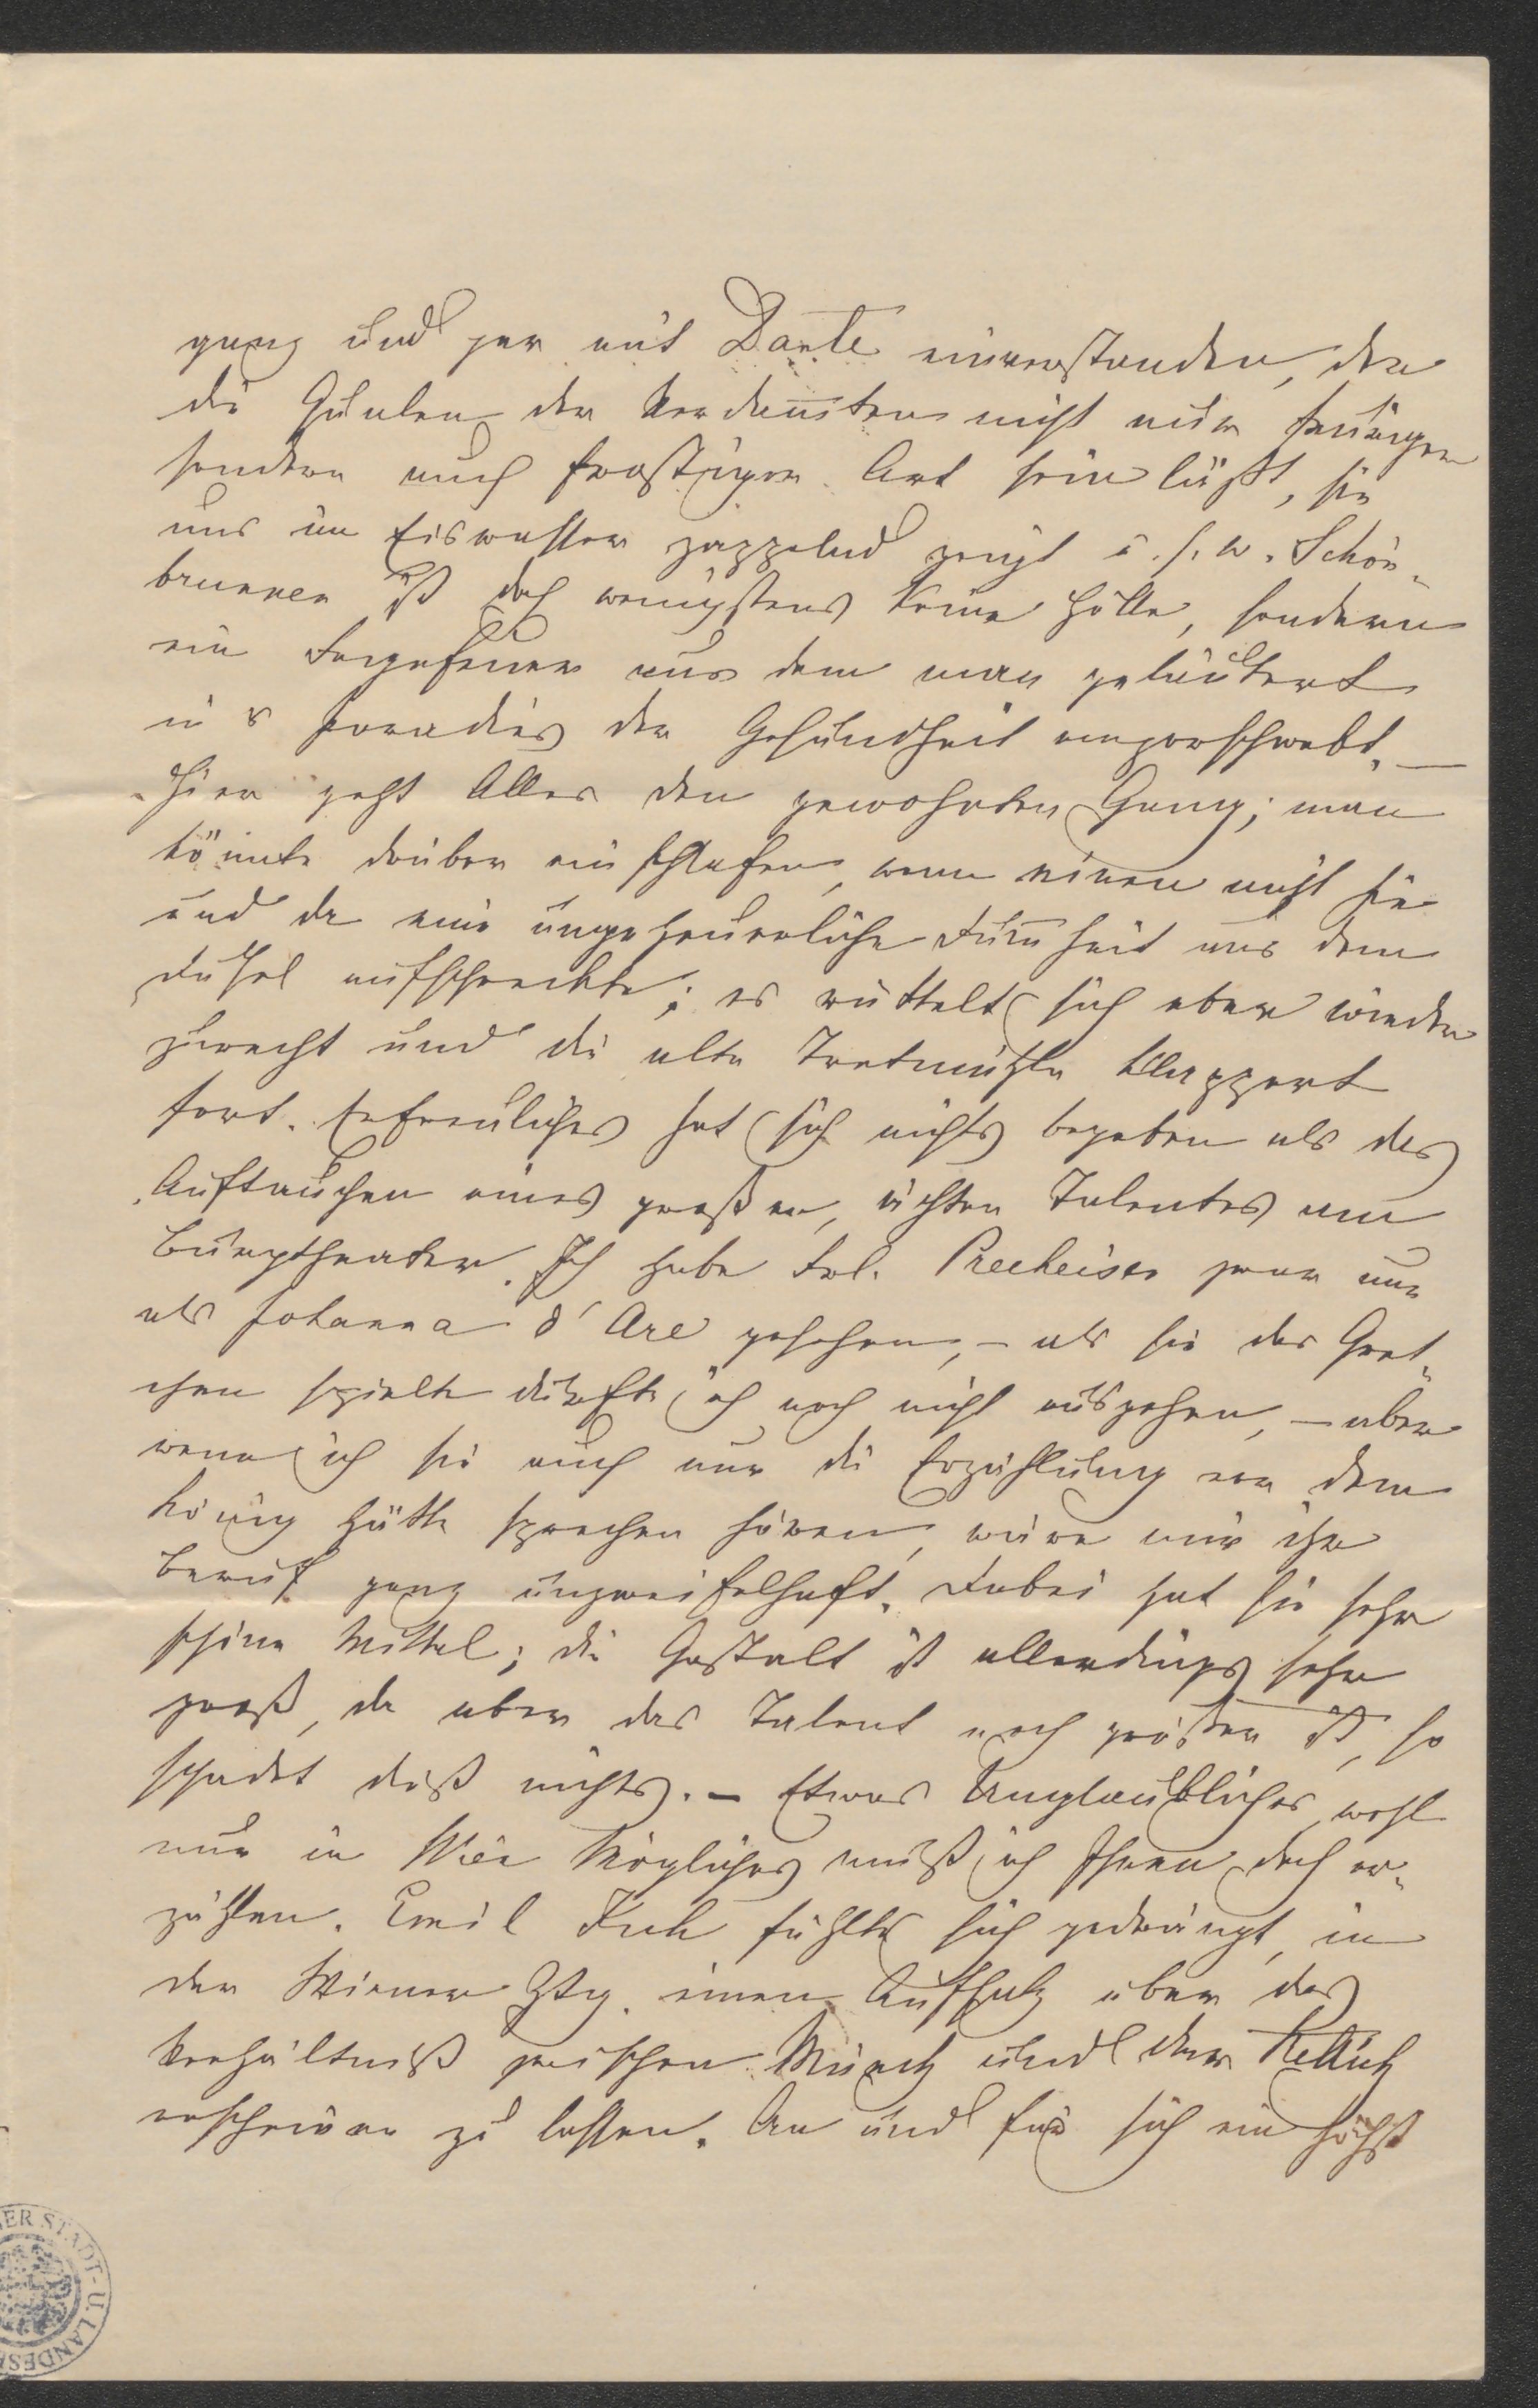 ganz und gar mit Dante einverstanden, der
die Qualen der Verdammten nicht nur feuriger
sondern auch frostiger Art sein läßt, sie
uns im Eiswasser zappelnd zeigt u. s. w. Schön-
brunnen ist doch wenigstens keine Hölle, sondern
ein Fegefeuer aus dem man geläutert
in's Paradies der Gesundheit emporschwebt. —
Hier geht Alles den gewohnten Gang; man
könnte drüber einschlafen, wenn einen nicht hie
und da eine ungeheuerliche Dumheit aus dem
Dusel aufschreckte; es rüttelt sich aber wieder
zurecht und die alte Tretmühle klappert
fort. Erfreuliches hat sich nichts begeben als das
Auftauchen eines großen, ächten Talentes am
Burgtheater. Ich habe Frl. Precheisen zwar nur
als Johanna d'Arc gesehen, – als sie das Gret-
chen spielte durfte ich noch nicht ausgehen, – aber
wenn ich sie auch nur die Erzählung vor dem
König hätte sprechen hören, wäre mir ihr
Beruf ganz unzweifelhaft. Dabei hat sie sehr
schöne Mittel; die Gestalt ist allerdings sehr
groß, da aber das Talent noch größer ist, so
schadet dieß nichts. – Etwas Unglaubliches, wohl
nur in Wien Mögliches muß ich Ihnen doch er-
zählen. Emil Kuh fühlte sich gedrängt, in
der Wiener Ztg. einen Aufsatz über das
Verhältniß zwischen Münch und der Rettich
erscheinen zu lassen. An und für sich ein höchst
ER STADT- U. LANDES